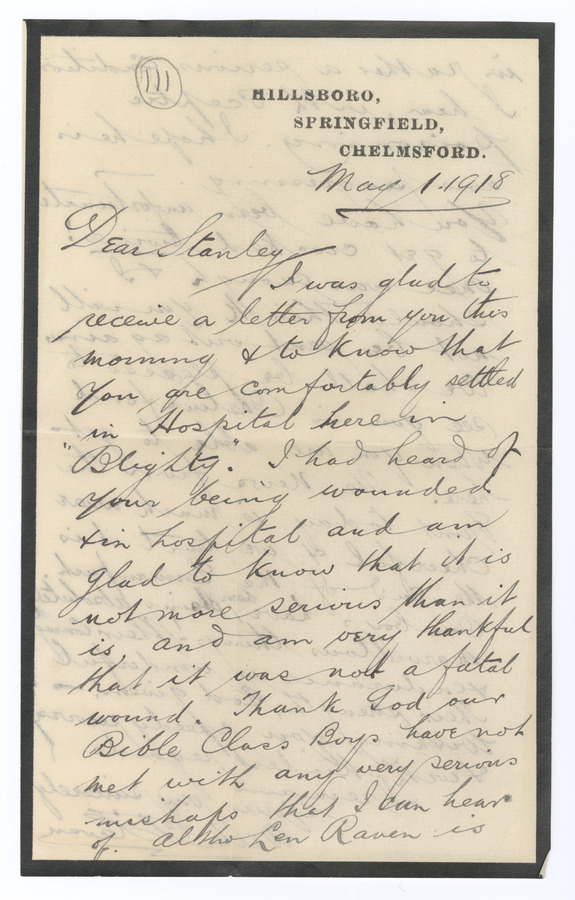 111
HILLSBORO,
SPRINGFIELD,
CHELMSFORD.
May 1. 1918
Dear Stanley
I was glad to
receive a letter from you this
morning & to know that
you are comfortably settled
in Hospital here in
"Blighty". I had heard of
your being wounded
& in hospital and am
glad to know that it is
not more serious than it
is, and am very thankful
that it was not a fatal
wound. Thank God our
Bible Class Boys have not
met with any very serious
mishaps that I can hear
of. altho Len Raven is